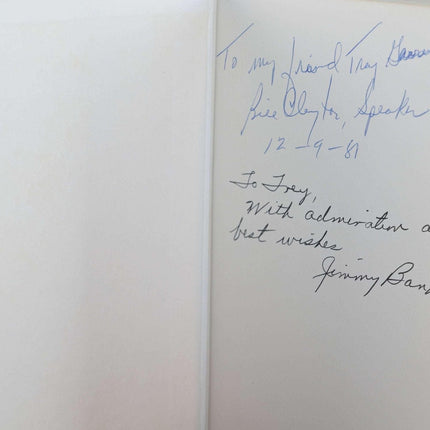 To my friend Trey
Bill Clayton, Speaker
12-9-81
To Trey,
With admiration a
best wishes
Jimmy Ban